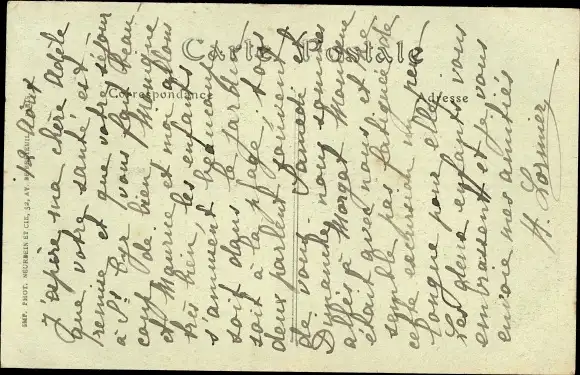 Carte Postale
Correspondance
Adresse
IMP. PHOT. NEURDEIN ET CIE, 52, AV. BRETEUIL
août
J'espère ma chère Adèle
que votre santé est
remise et que votre séjour
à St Pur vous fait beau-
coup de bien, Monique
et Maurice et moi allons
très bien, les enfants
s'amusent beaucoup
soit dans le jardin
soit à la plage, tous
deux parlent souvent
de vous. Samedi et
Dimanche nous sommes
allés à Morgat Monique
étant avec nous et ne
semble pas fatiguée de
cette excursion un peu
longue pour elle.
Les deux enfants vous
embrassent et je vous
envoie mes amitiés
H. Lormier